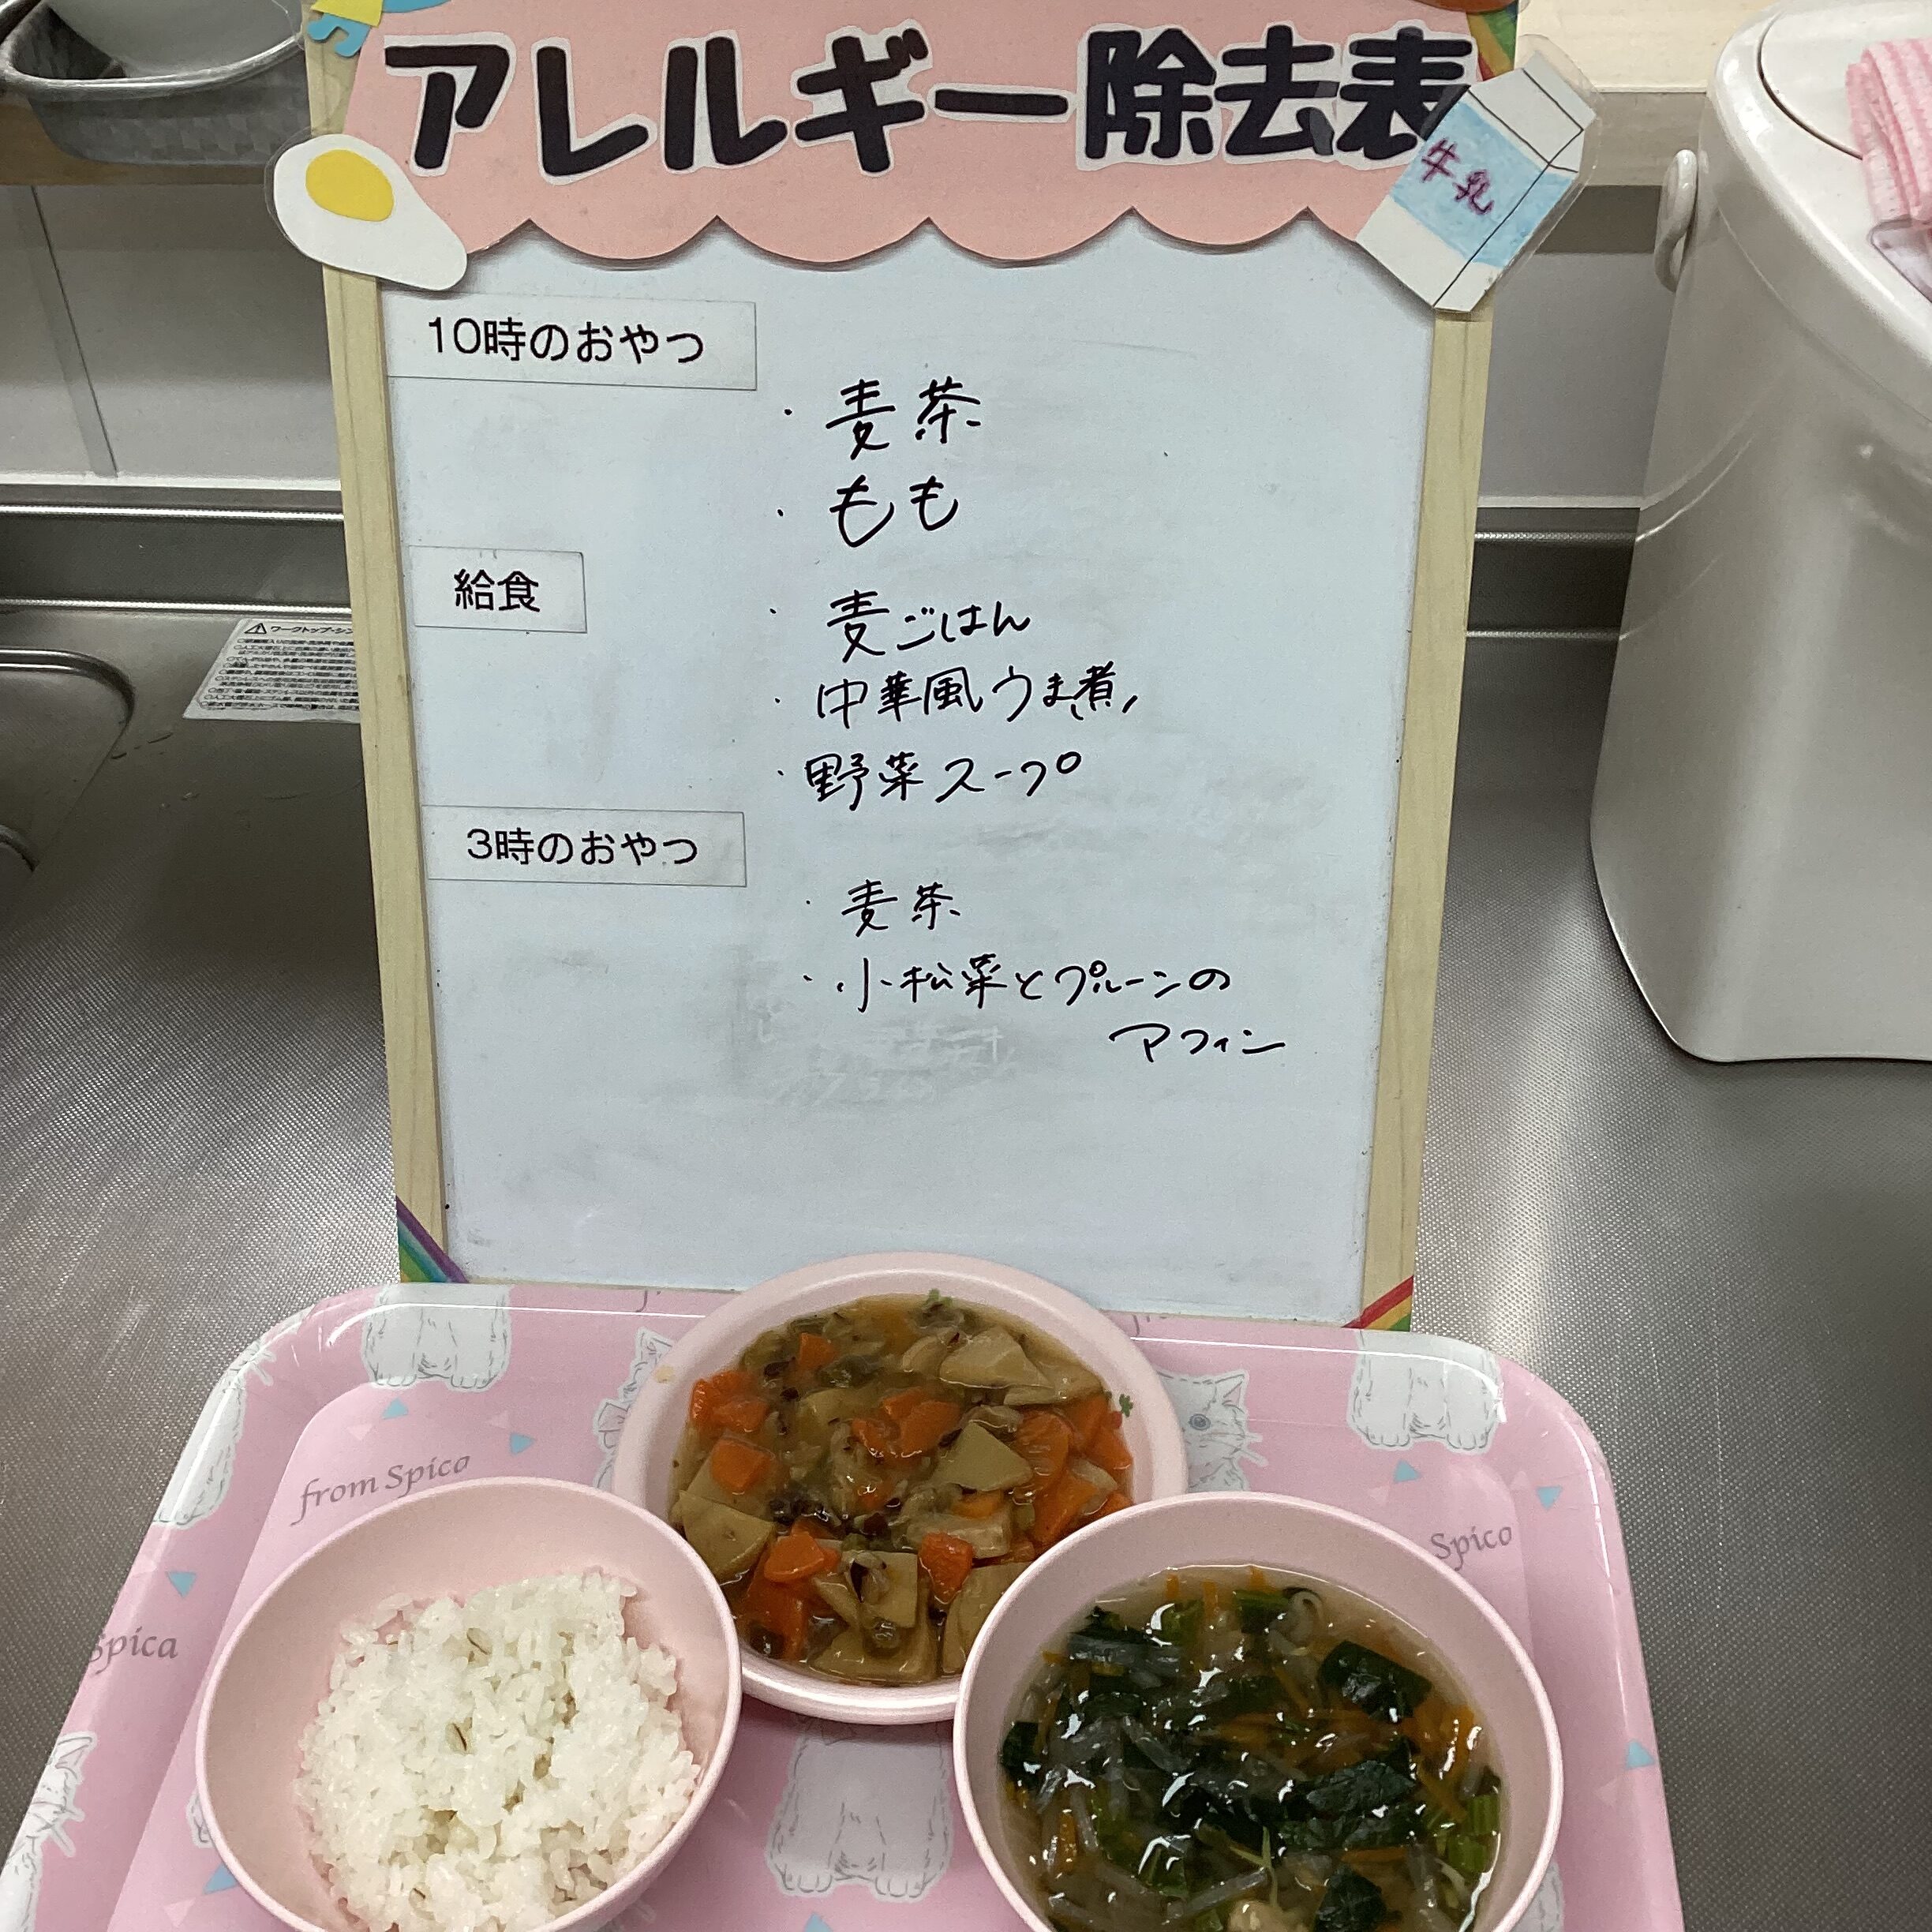 アレルギー除去表
牛乳
10時のおやつ
・麦茶
・もも
給食
・麦ごはん
・中華風うま煮
・野菜スープ
3時のおやつ
・麦茶
・小松菜とプルーンの
マフィン
from Spico
Spico
Spica